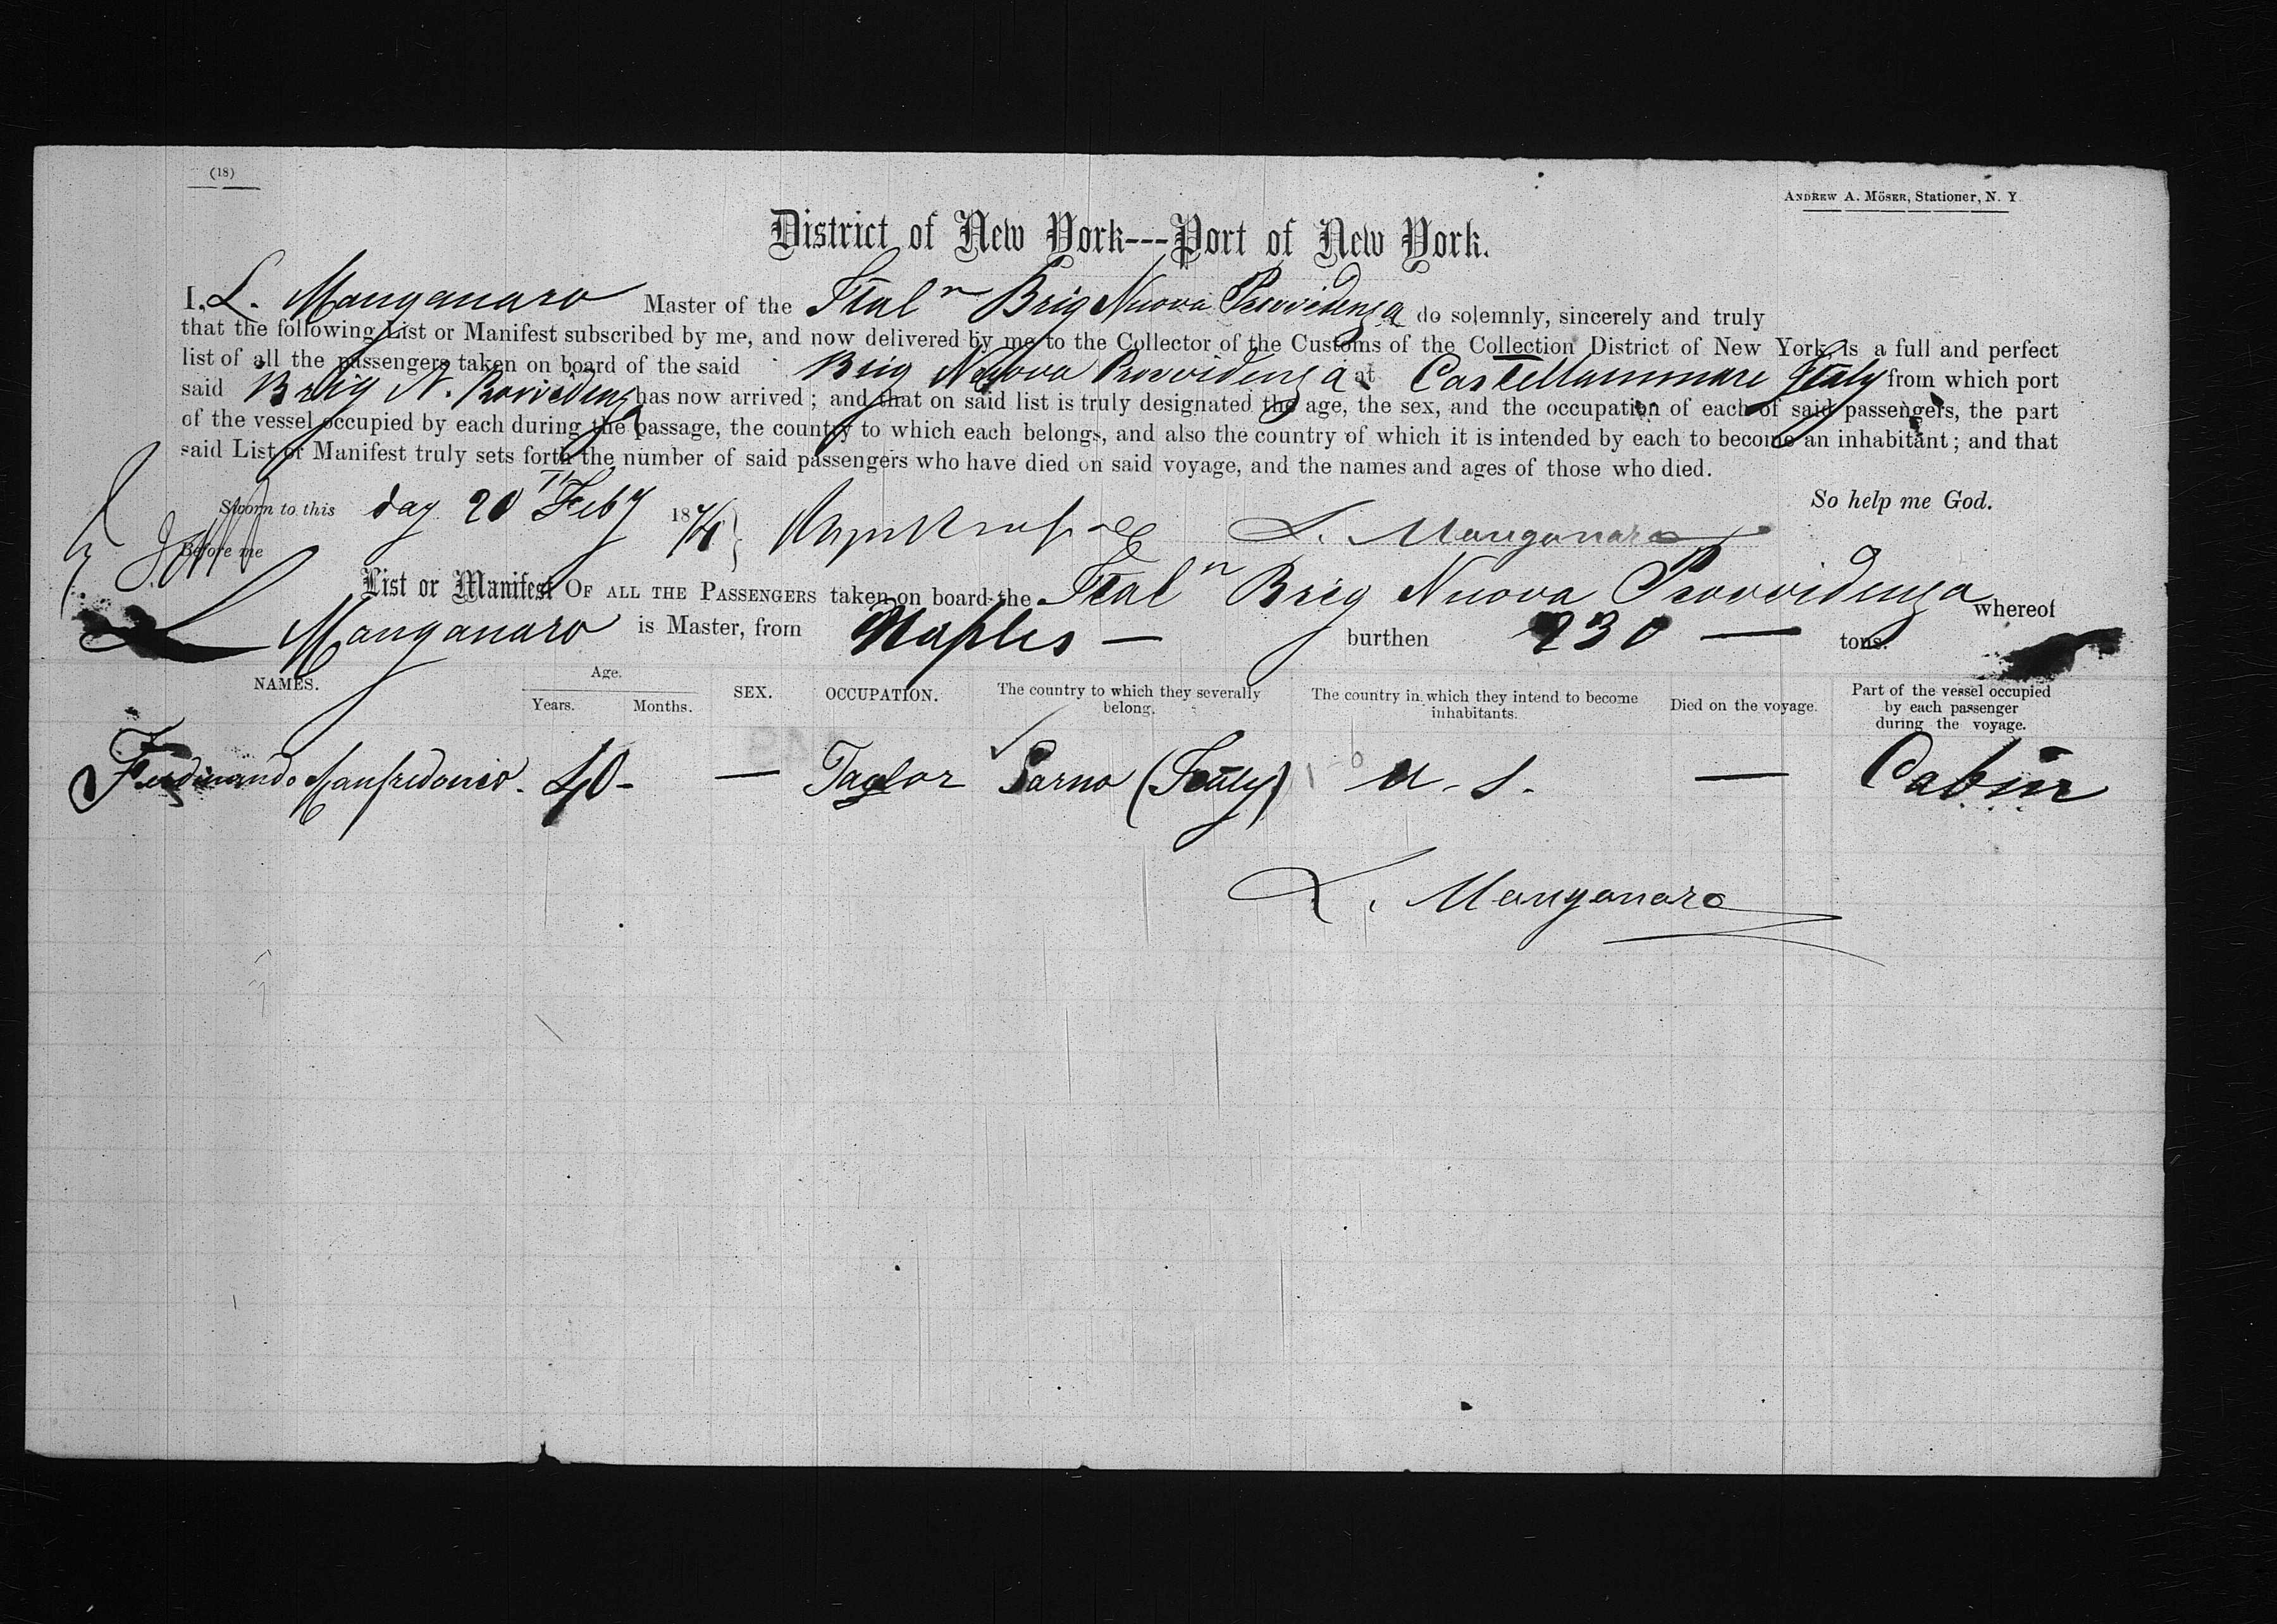 (18)
ANDREW A. MÖSER, Stationer, N. Y.
District of New York---Port of New York.
I, L. Manganaro Master of the Ital n Brig Nuova Provvidenza do solemnly, sincerely and truly
that the following List or Manifest subscribed by me, and now delivered by me to the Collector of the Customs of the Collection District of New York, is a full and perfect
list of all the passengers taken on board of the said Brig Nuova Provvidenza at Castellammare Italy from which port
said Brig N. Provvidenz has now arrived; and that on said list is truly designated the age, the sex, and the occupation of each of said passengers, the part
of the vessel occupied by each during the passage, the country to which each belongs, and also the country of which it is intended by each to become an inhabitant; and that
said List or Manifest truly sets forth the number of said passengers who have died on said voyage, and the names and ages of those who died.
So help me God.
Sworn to this day 20 TH Feby 1874 L. Manganaro
Before me
List or Manifest OF ALL THE PASSENGERS taken on board the Ital n Brig Nuova Provvidenza whereof
L Manganaro is Master, from Naples — burthen 230 — tons.
NAMES. Age. Years. Months. SEX. OCCUPATION. The country to which they severally belong. The country in which they intend to become inhabitants. Died on the voyage. Part of the vessel occupied by each passenger during the voyage.
Ferdinando Manfredonio. 40 - — Taylor Sarno (Italy) U. S. — Cabin
L. Manganaro